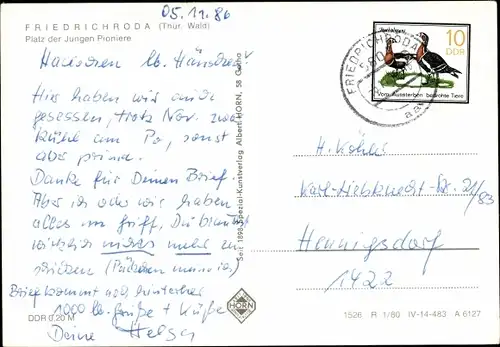 05.11.86
FRIEDRICHRODA (Thür. Wald)
Platz der Jungen Pioniere
lb.
Hier haben wir auch
gesessen, trotz Nov. zwar
kühl am Po, sonst
aber prima.
Danke für Deinen Brief.
Aber wir haben
alles im Griff. Du brauchst
wirklich nichts mehr zu
schicken
Brief kommt noch hinterher
1000 lb. Grüße + Küße
Deine Helga
DDR 0,20 M
Seit 1898 Spezial-Kunstverlag Albert HORN, 58 Gotha
HORN
FRIEDRICHRODA
10
DDR
Vom Aussterben bedrohte Tiere
H. Köhler
Karl-Liebknecht-Str. 21/83
Hennigsdorf
1422
1526 R 1/80 IV-14-483 A 6127